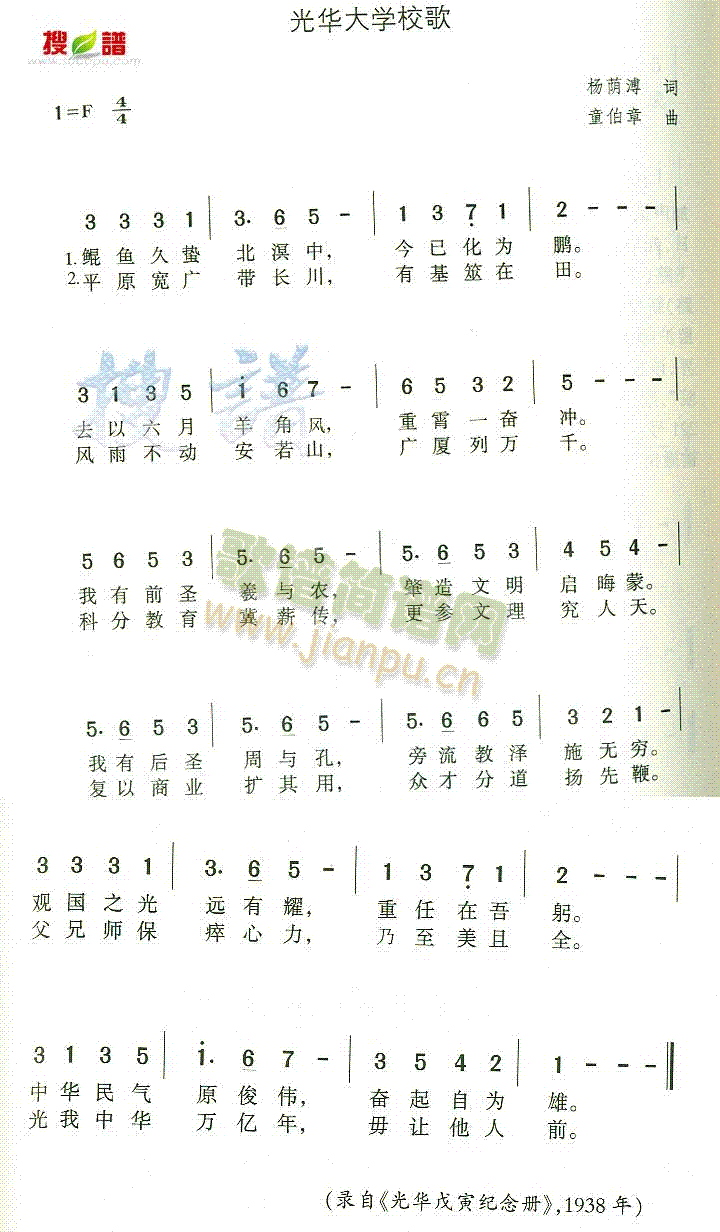 光华大学校歌
搜 譜
www.sooopu.com
杨荫溥 词
1=F 4/4
童伯章 曲
3 3 3 1 | 3. 6 5 - | 1 3 7 1 | 2 - - - |
1.鲲鱼久蛰 北溟中, 今已化为 鹏。
2.平原宽广 带长川, 有基筮在 田。
3 1 3 5 | i 6 7 - | 6 5 3 2 | 5 - - - |
去以六月 羊角风, 重霄一奋 冲。
风雨不动 安若山, 广厦列万 千。
5 6 5 3 | 5. 6 5 - | 5. 6 5 3 | 4 5 4 - |
我有前圣 羲与农, 肇造文明 启晦蒙。
科分教育 冀薪传, 更参文理 究人天。
歌谱简谱网
www.jianpu.cn
5. 6 5 3 | 5. 6 5 - | 5. 6 6 5 | 3 2 1 - |
我有后圣 周与孔, 旁流教泽 施无穷。
复以商业 扩其用, 众才分道 扬先鞭。
3 3 3 1 | 3. 6 5 - | 1 3 7 1 | 2 - - - |
观国之光 远有耀, 重任在吾 躬。
父兄师保 瘁心力, 乃至美且 全。
3 1 3 5 | i. 6 7 - | 3 5 4 2 | 1 - - - ‖
中华民气 原俊伟, 奋起自为 雄。
光我中华 万亿年, 毋让他人 前。
(录自《光华戊寅纪念册》,1938 年)